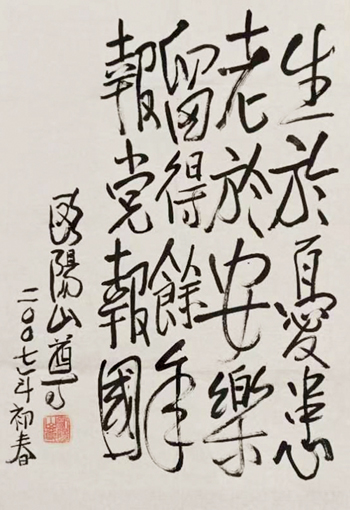 生於憂患
老於安樂
留得餘年
報党報國
欧陽山尊
二〇〇七年初春